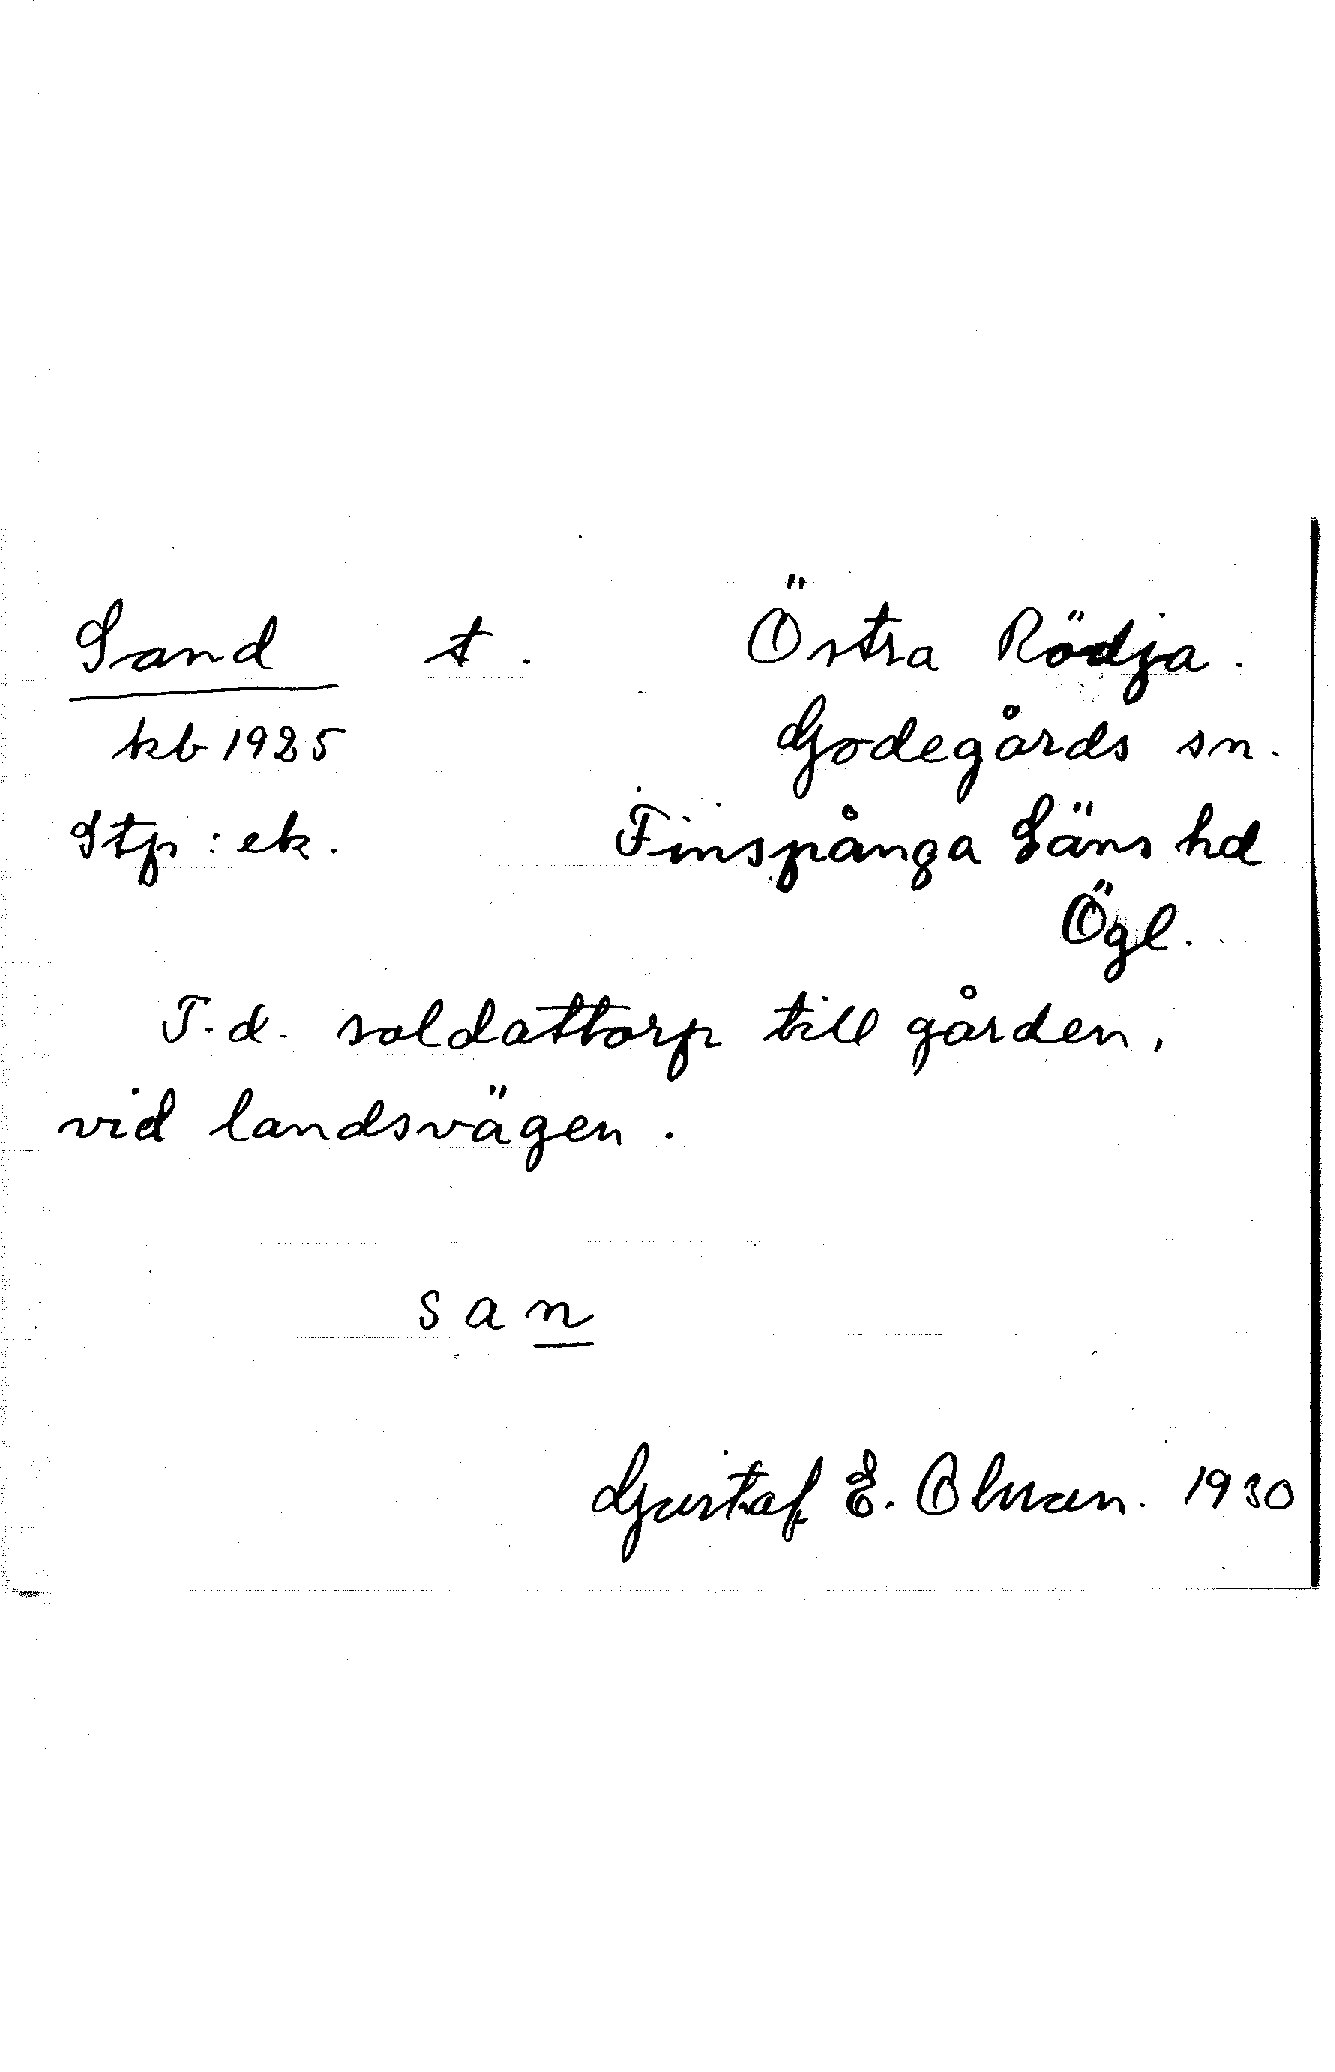 Sand t. Östra Rödja.
kb 1925 Godegårds sn.
Stp: ek. Finspånga Läns hd
Ögl.
T.d. soldattorp till gården,
vid landsvägen.
san
Gustaf E. Olsson. 1930